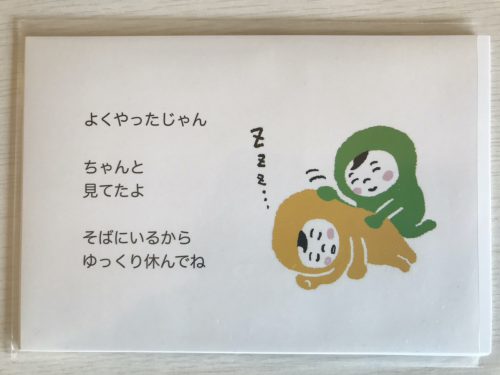 よくやったじゃん
ちゃんと
見てたよ
そばにいるから
ゆっくり休んでね
Zzz...